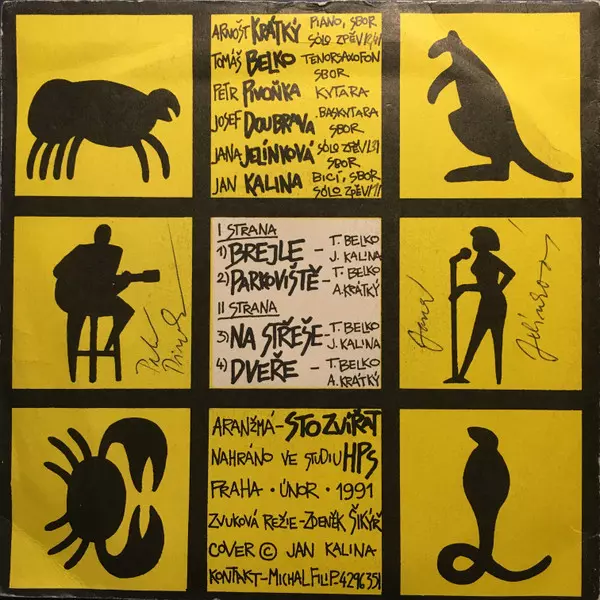 ARNOŠT KRÁTKÝ PIANO, SBOR
SÓLO ZPĚV
TOMÁŠ BELKO TENORSAXOFON
SBOR
PETR PIVOŇKA KYTARA
JOSEF DOUBRAVA BASKYTARA
SBOR
JANA JELÍNKOVÁ SÓLO ZPĚV
SBOR
JAN KALINA BICÍ, SBOR
SÓLO ZPĚV
I STRANA
1) BREJLE – T. BELKO
J. KALINA
2) PARKOVIŠTĚ – T. BELKO
A. KRÁTKÝ
II STRANA
3) NA STŘEŠE – T. BELKO
J. KALINA
4) DVEŘE – T. BELKO
A. KRÁTKÝ
ARANŽMÁ – STO ZVÍŘAT
NAHRÁNO VE STUDIU HPS
PRAHA · ÚNOR · 1991
ZVUKOVÁ REŽIE – ZDENĚK ŠIKÝŘ
COVER © JAN KALINA
KONTAKT – MICHAL FILIP. 4296351